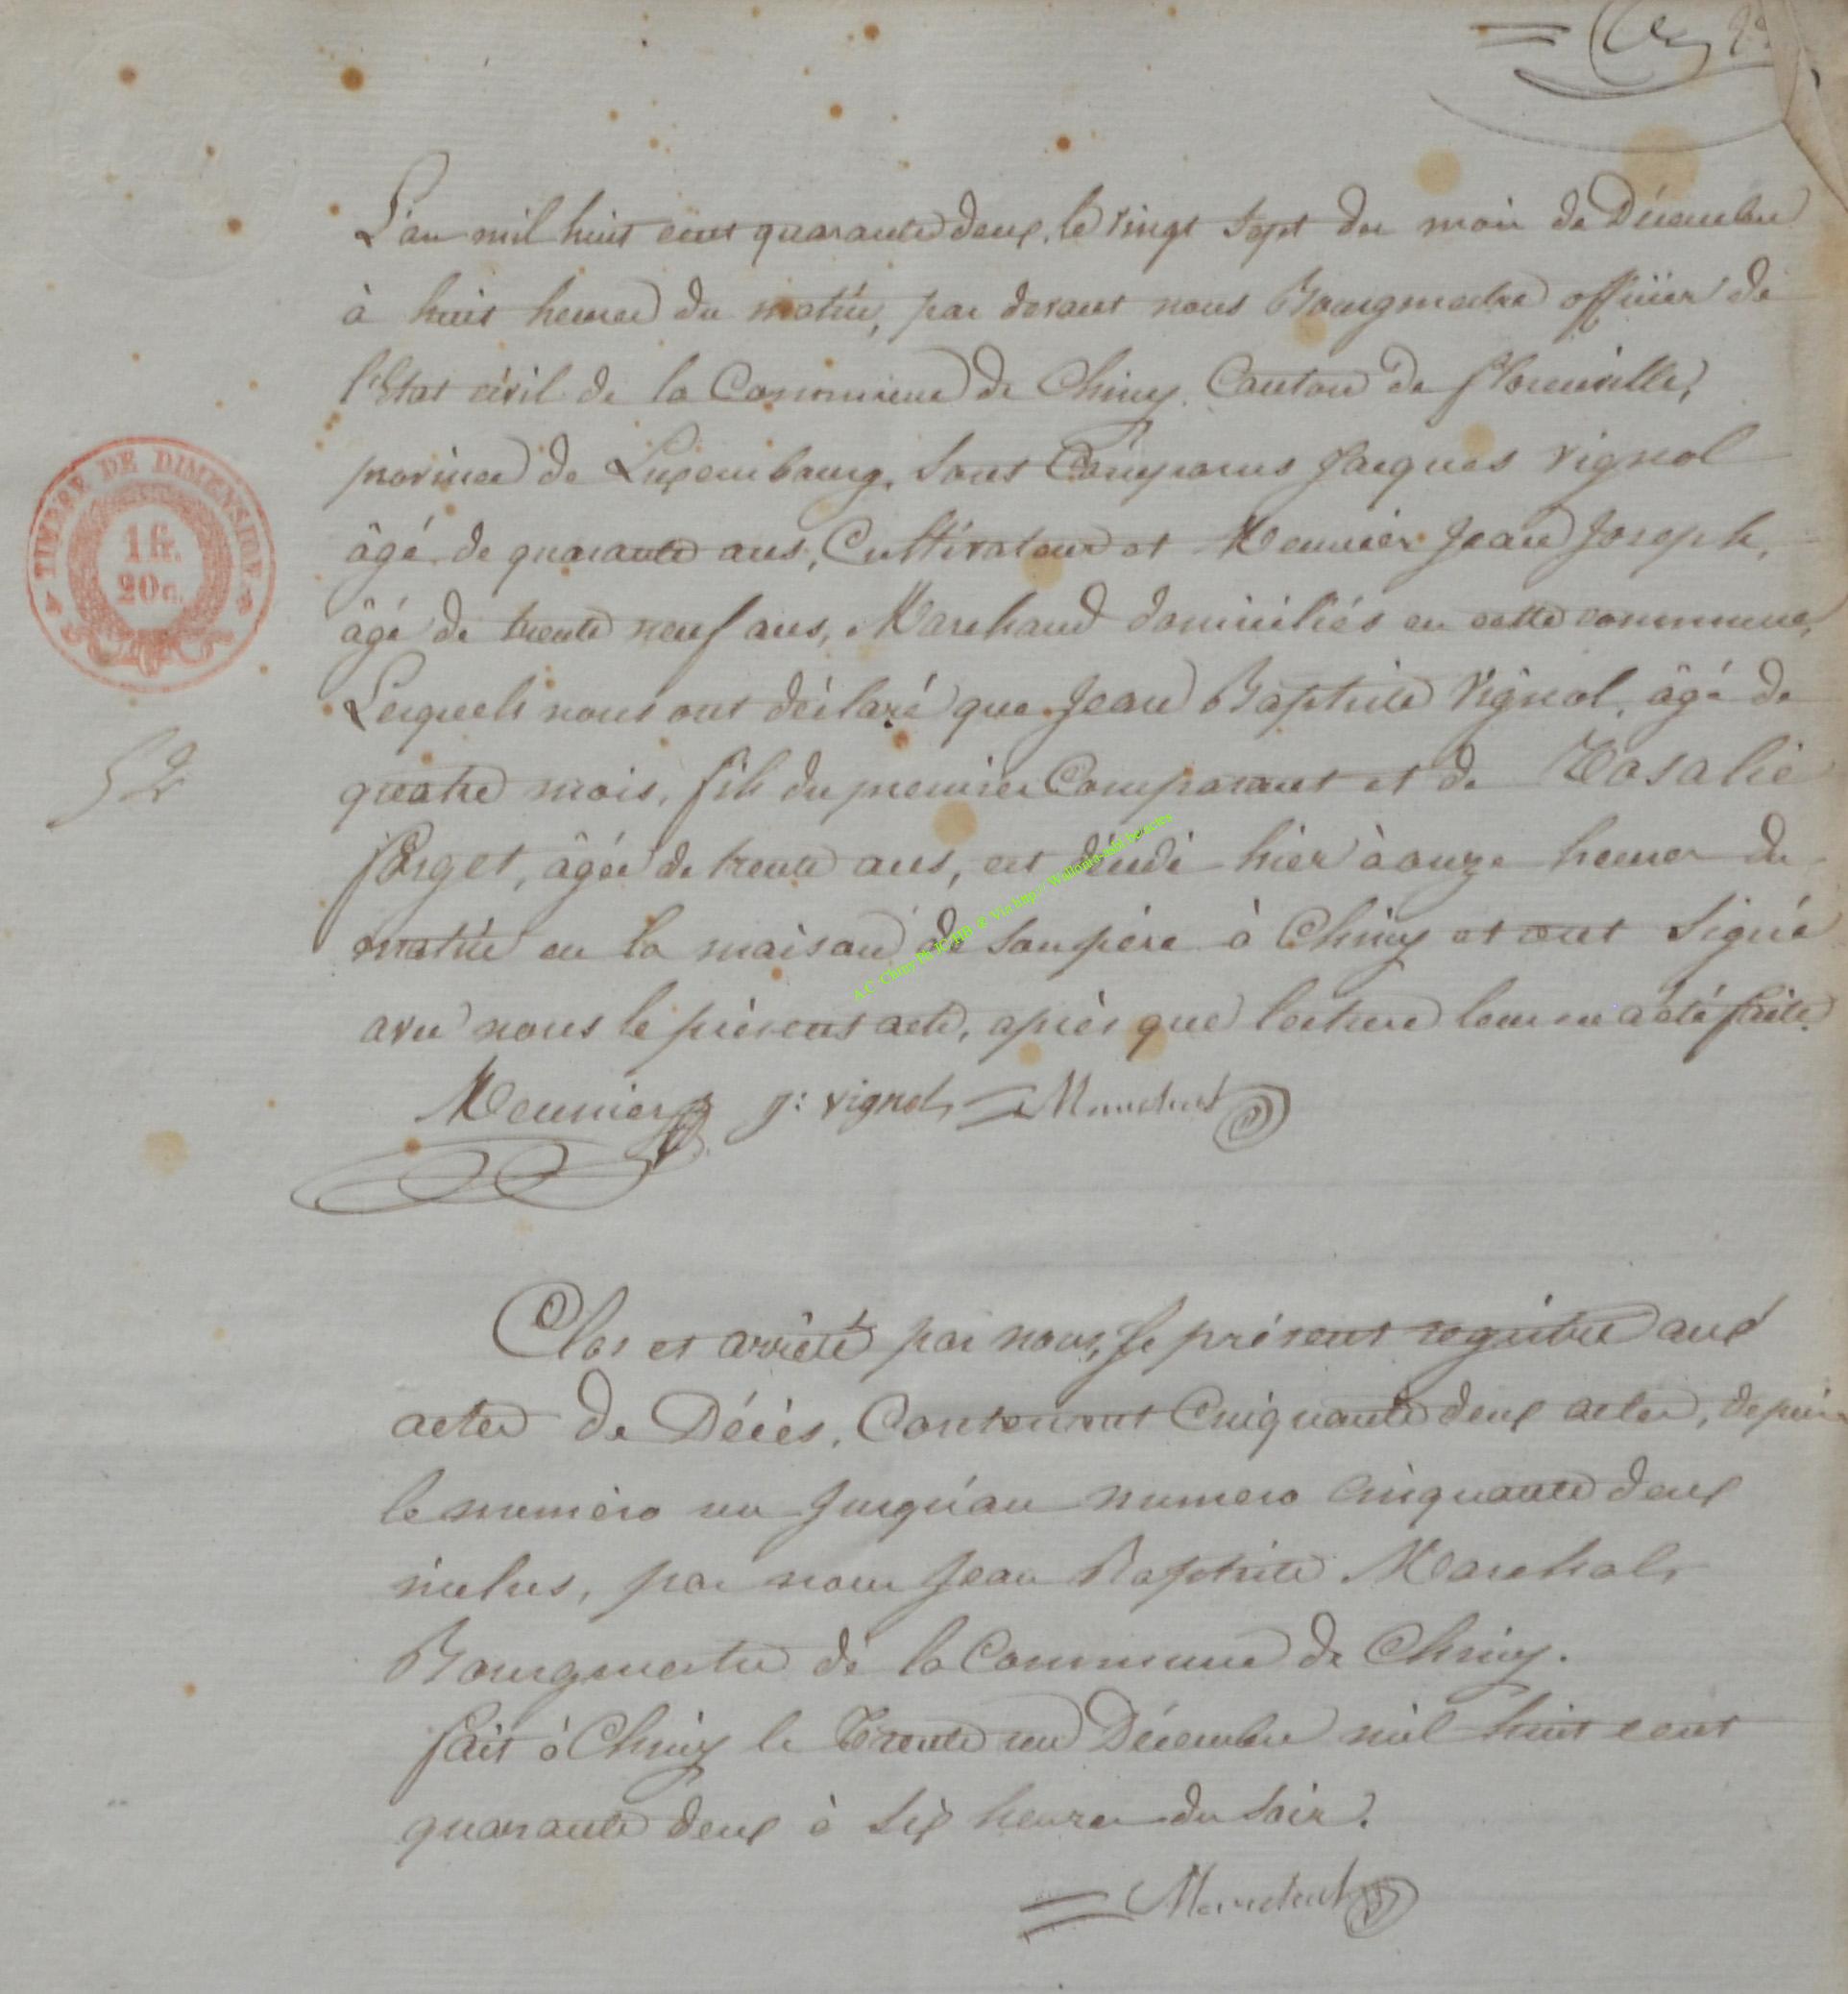 L'an mil huit cent quarante deux, le vingt sept du mois de Décembre
à huit heures du matin, par devant nous Bourgmestre officier de
l'Etat civil de la Commune de Chiny, Canton de florenville,
province de Luxembourg, Sont Comparus Jacques Vignol
âgé de quarante ans, Cultivateur et Meunier Jean Joseph,
âgé de trente neuf ans, Marchand domiciliés en cette commune,
Lesquels nous ont déclaré que Jean Baptiste Vignol, âgé de
quatre mois, fils du premier Comparant et de Rosalie
forget, âgée de trente ans, est décédé hier à onze heures du
matin en la maison de son père à Chiny et ont Signé
avec nous le présent acte, après que lecture leur en a été faite.
Meunier J: vignol Marechal
TIMBRE DE DIMENSION
1 fr.
20 c.
52
A.C. Chiny
Clos et arrêté par nous, le présent registre aux
actes de Décès, Contenant Cinquante deux actes, depuis
le numéro un Jusqu'au numero cinquante deux
inclus, par nous Jean Baptiste Marechal,
Bourgmestre de la Commune de Chiny.
fait à Chiny le Trente un Décembre mil huit cent
quarante deux à Six heures du Soir.
Marechal